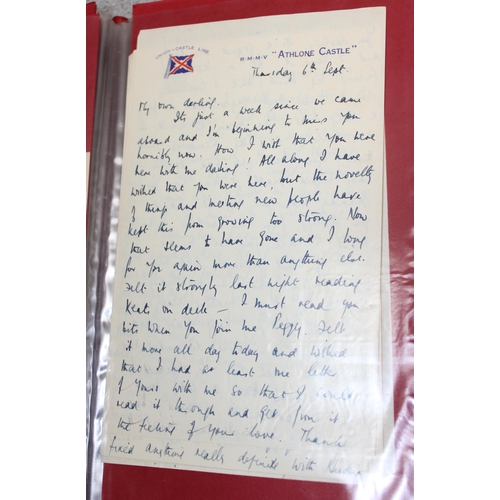 UNION-CASTLE LINE
R·M·M·V "ATHLONE CASTLE"
Thursday 6th Sept.
My own darling,
Its just a week since we came
aboard and I'm beginning to miss you
horribly now. How I wish that you were
here with me darling! All along I have
wished that you were here, but the novelty
of things and meeting new people have
kept this from growing too strong. Now
that seems to have gone and I long
for you again more than anything else.
Felt it strongly last night reading
Keats on deck — I must read you
bits when you join me Peggy. Felt
it more all day today and wished
that I had at least one letter
of yours with me so that I could
read it through and get from it
the feeling of your love.
anything really definite with